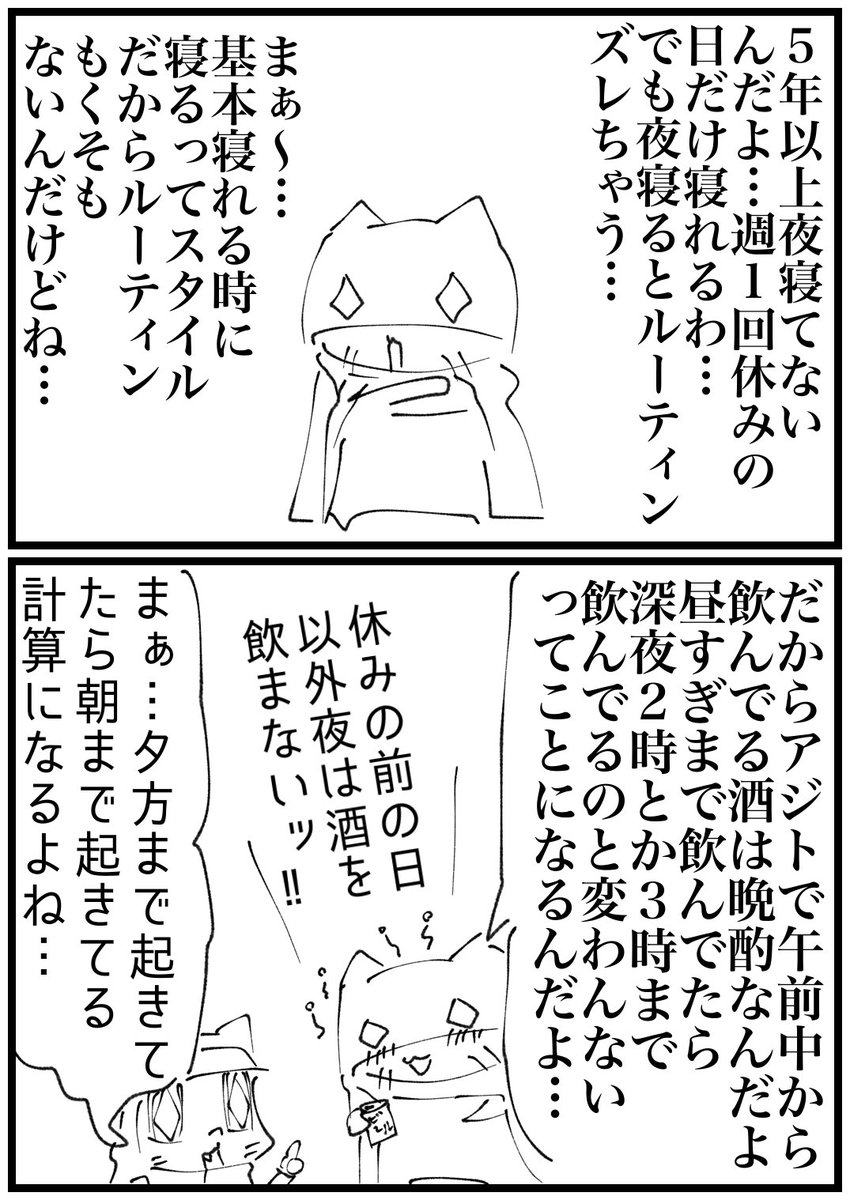 ５年以上夜寝てない
んだよ…週１回休みの
日だけ寝れるわ…
でも夜寝るとルーティン
ズレちゃう…
まぁ〜…
基本寝れる時に
寝るってスタイル
だからルーティン
もくそも
ないんだけどね…
だからアジトで午前中から
飲んでる酒は晩酌なんだよ
昼すぎまで飲んでたら
深夜２時とか３時まで
飲んでるのと変わんない
ってことになるんだよ…
休みの前の日
以外夜は酒を
飲まないッ‼
ビール
まぁ…夕方まで起きて
たら朝まで起きてる
計算になるよね…